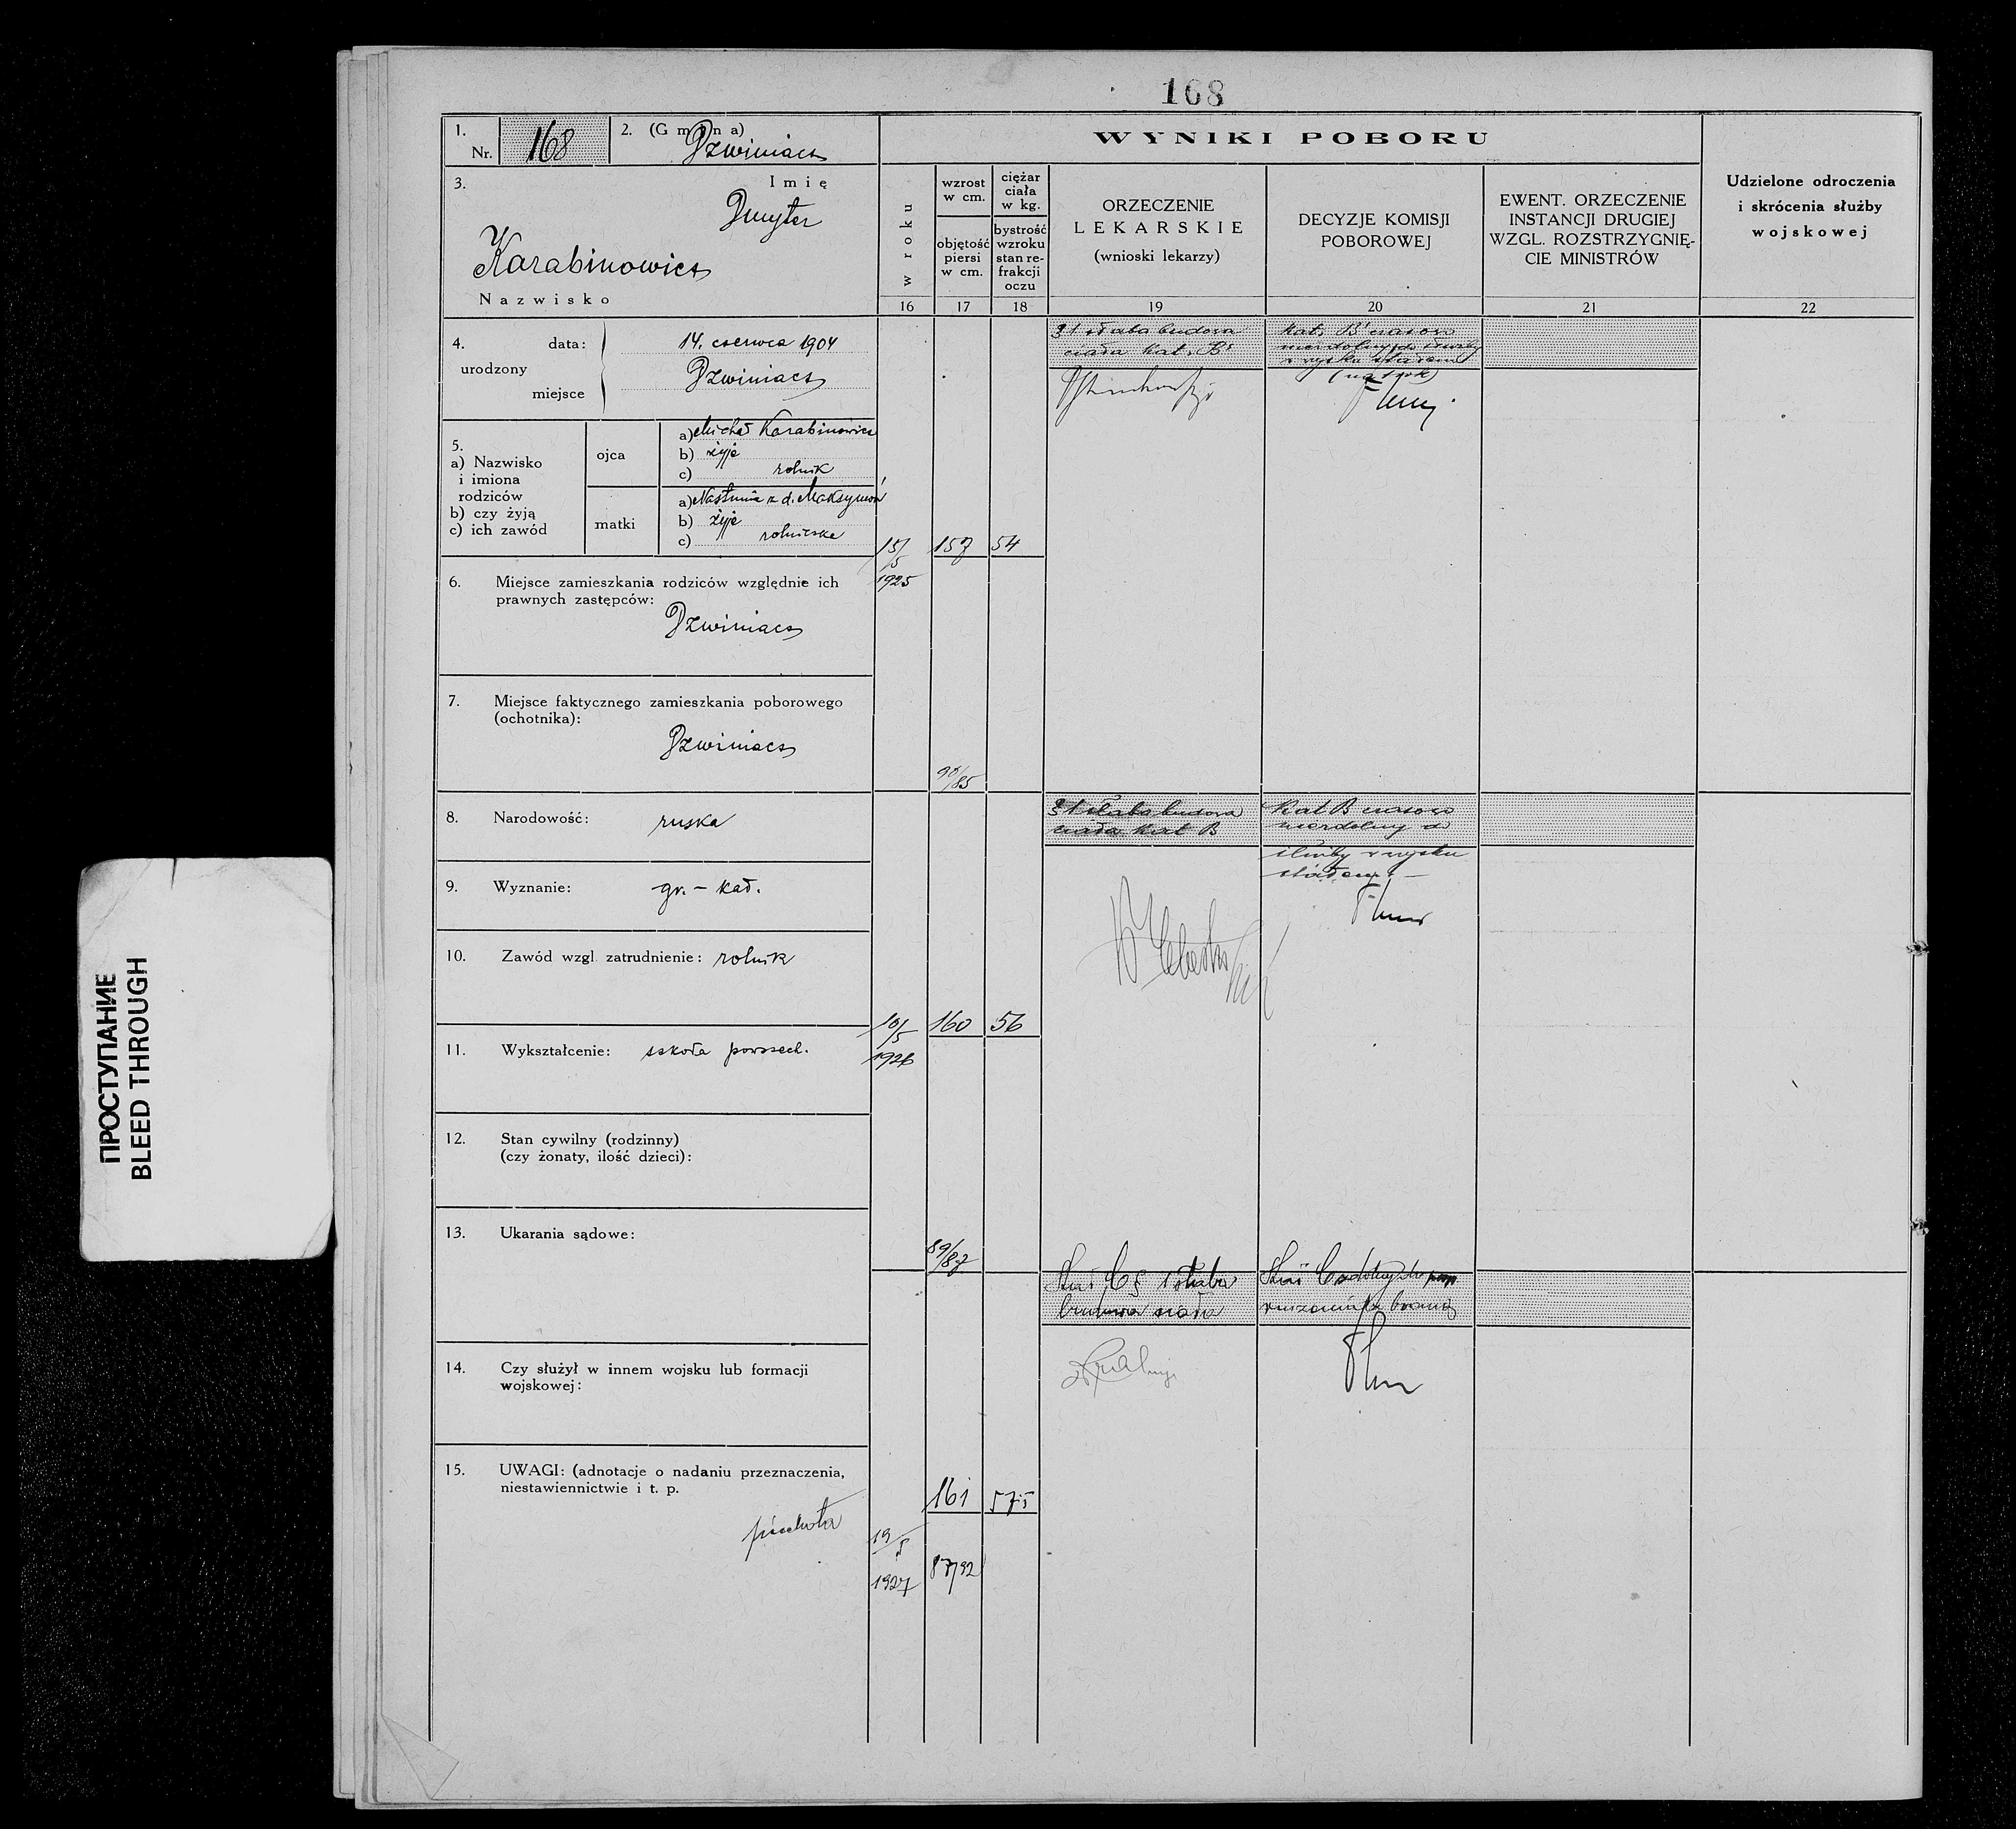 168
1. Nr. 168
2. (Gmina) Dzwiniacz
WYNIKI POBORU
3. Imię
Dmyter
Karabinowicz
Nazwisko
w roku
wzrost w cm.
objętość piersi w cm.
ciężar ciała w kg.
bystrość wzroku stan re-frakcji oczu
ORZECZENIE
LEKARSKIE
(wnioski lekarzy)
DECYZJE KOMISJI
POBOROWEJ
EWENT. ORZECZENIE
INSTANCJI DRUGIEJ
WZGL. ROZSTRZYGNIĘ-
CIE MINISTRÓW
Udzielone odroczenia
i skrócenia służby
wojskowej
16 17 18 19 20 21 22
4. data: 14. czerwca 1904
urodzony
miejsce Dzwiniacz
5.
a) Nazwisko
i imiona
rodziców
b) czy żyją
c) ich zawód
ojca
a) Michał Karabinowicz
b) żyje
c) rolnik
matki
a) Nastunia z d. Maksymów
b) żyje
c) rolniczka
6. Miejsce zamieszkania rodziców względnie ich
prawnych zastępców:
Dzwiniacz
7. Miejsce faktycznego zamieszkania poborowego
(ochotnika):
Dzwiniacz
8. Narodowość: ruska
9. Wyznanie: gr. - kat.
10. Zawód wzgl. zatrudnienie: rolnik
11. Wykształcenie: szkoła powszech.
12. Stan cywilny (rodzinny)
(czy żonaty, ilość dzieci):
13. Ukarania sądowe:
14. Czy służył w innem wojsku lub formacji
wojskowej:
15. UWAGI: (adnotacje o nadaniu przeznaczenia,
niestawiennictwie i t. p.
piechota
15/5 1925
157 54
§ 1 słaba budowa
ciała kat. B
kat. B czasowo
niezdolny do służby
w wojsku stałem
(na 1 rok)
10/5 1926
160 56
§ 1 słaba budowa
ciała kat B
Kat B czasowo
niezdolny do
służby w wojsku
stałem
89/87
19/5 1927
161 57.5
87/92
C § 1 słaba
budowa ciała
C zdolny do posp.
ruszenia z bronią
ПРОСТУПАНИЕ
BLEED THROUGH